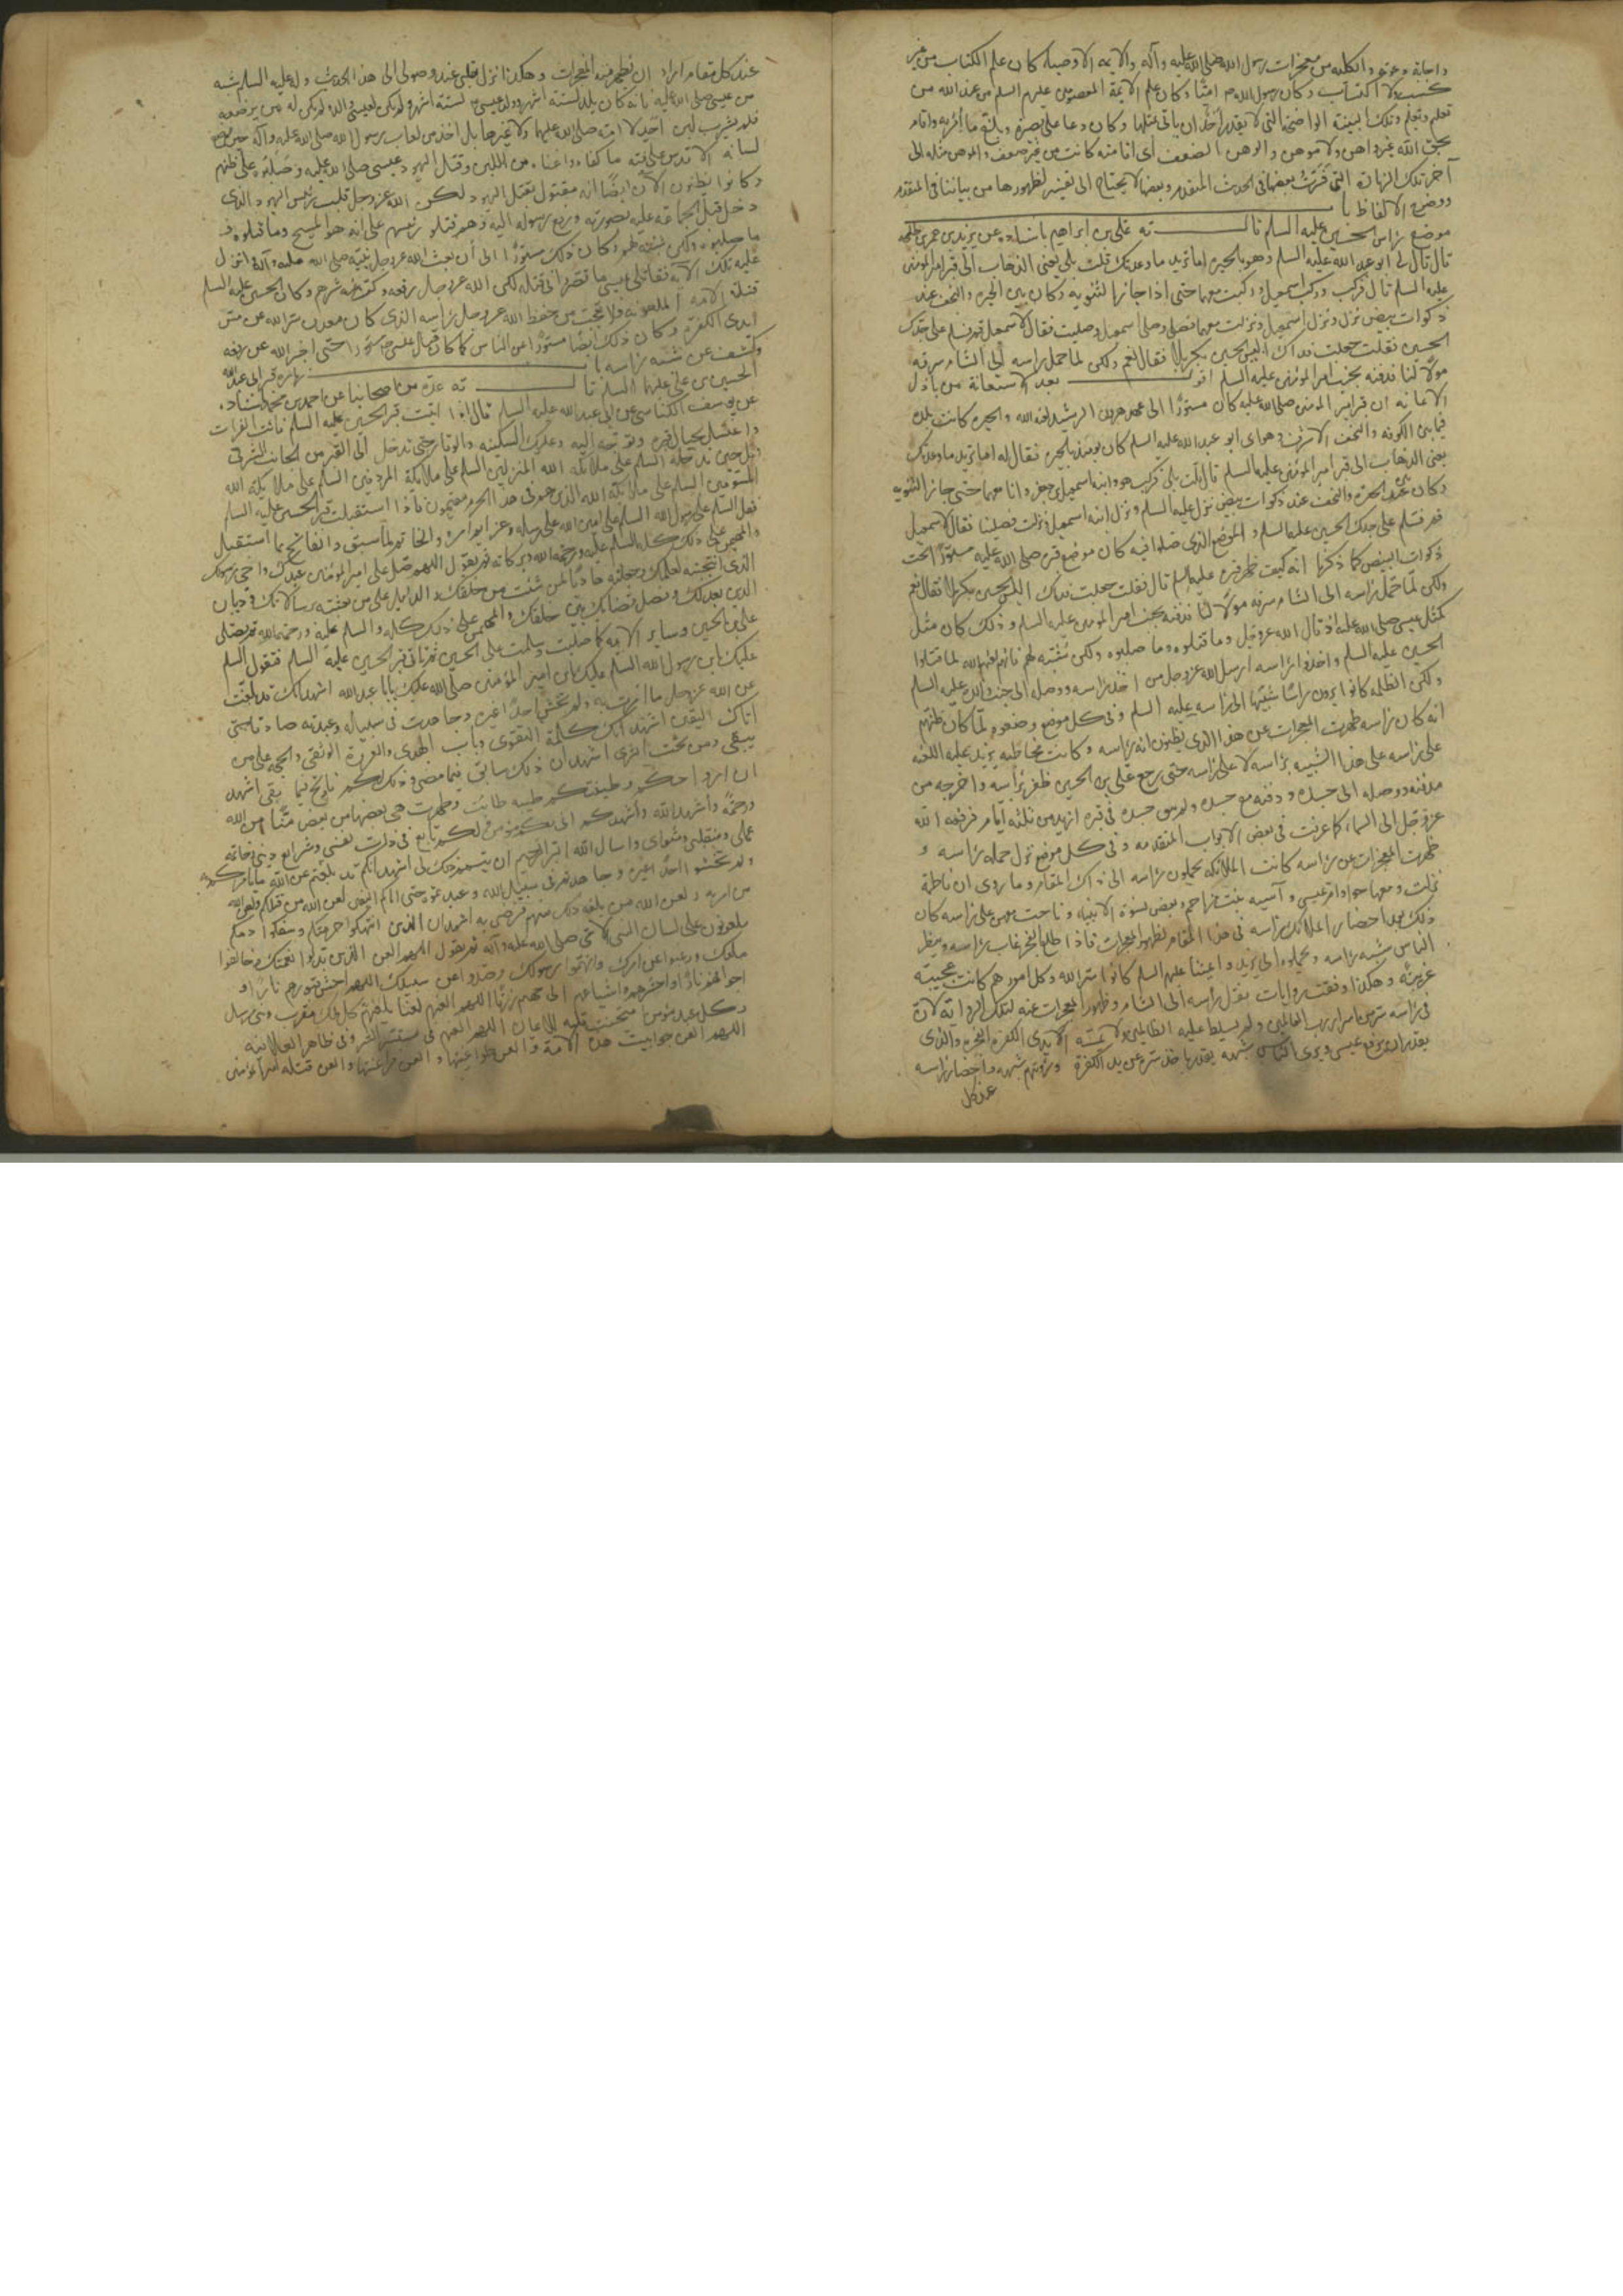 واجابة دعوته والكلية من معجزات رسول الله صلى الله عليه وآله والايمة الاوصياء كان علم الكتاب من غير
كسب ولا اكتساب وكان رسول الله ص اميا وكان علم الايمة المعصومين عليهم السلم من عند الله من
تعلم وتعلم وتلك البينة الواضحة التى لا يقدر احد ان ياتى بمثلها وكان دعا على بصيرة وبلغ ما امر به واقام
بحق الله غير واهن ولا موهن والوهن الضعف اى اقامته كانت من غير ضعف والموهن مثله الى
آخر تلك الزيارة التى فسرت بعضها فى الحديث المتقدم وبعضها لا يحتاج الى تفسير لظهورها من بياننا فى المتقدم
ووضوح الالفاظ باب
موضع راس الحسين عليه السلم قال ته على بن ابراهيم باسناده عن يزيد بن عمر بن طلحة
قال قال لى ابو عبد الله عليه السلم وهو بالحيرة اما تريد ما وعدتك قلت بلى يعنى الذهاب الى قبر امير المؤمنين
عليه السلم قال فركب وركب اسمعيل وركبت معهما حتى اذا جاز الثوية وكان بين الحيرة والنجف عند
ذكوات بيض نزل ونزل اسمعيل ونزلت معهما فصلى وصلى اسمعيل وصليت فقال لاسمعيل قم فسلم على جدك
الحسين فقلت جعلت فداك اليس الحسين بكربلا فقال نعم ولكن لما حمل راسه الى الشام سرقه
مولى لنا فدفنه بجنب امير المؤمنين عليه السلم اقول بعد الاستعانة من باذل
الاعانة ان قبر امير المؤمنين صلى الله عليه كان مستورا الى عهد هرون الرشيد لعنه الله والحيرة كانت بلدة
فيما بين الكوفة والنجف الاشرف وهو اى ابو عبد الله عليه السلم كان يومئذ بالحيرة فقال له اما تريد ما وعدتك
يعنى الذهاب الى قبر امير المؤمنين عليه السلم قال قلت بلى فركب هو وابنه اسمعيل بن جعفر وانا معهما حتى جاز الثوية
وكان بين الحيرة والنجف عند ذكوات بيض نزل عليه السلم ونزل ابنه اسمعيل ونزلت فصلينا فقال لاسمعيل
قم فسلم على جدك الحسين عليه السلم والموضع الذى صلوا فيه كان موضع قبره صلى الله عليه مستورا تحت
ذكوات البيض كما ذكرنا انه كيف ظهر قبره عليه السلم قال فقلت جعلت فداك اليس الحسين بكربلا فقال نعم
ولكن لما حمل راسه الى الشام سرقه مولى لنا فدفنه بجنب امير المؤمنين عليه السلم وذلك كان مثل
كمثل عيسى صلى الله عليه اذ قال الله عز وجل وما قتلوه وما صلبوه ولكن شبه لهم فانهم لعنهم الله لما قتلوا
الحسين عليه السلم واخذوا راسه ارسل الله عز وجل من اخذ راسه ووصله الى جنب والده عليه السلم
ولكن الظلمة كانوا يرون راسا شبيها الى راسه عليه السلم وفى كل موضع وضعوه لما كان ظنهم
انه كان راسه ظهرت المعجزات عن هذا الذى يظنون انه راسه وكانت مخاطبة يزيد عليه اللعنة
على راسه على هذا الشبيه براسه لا على راسه حتى رجع على بن الحسين ظفر براسه واخرجه من
مدفنه ووصله الى جسده ودفنه مع جسده ولم يبق جسده فى قبره ازيد من ثلثة ايام فرفعه الله
عز وجل الى السماء كما عرفت فى بعض الابواب المتقدمة وفى كل موضع نزل حملة راسه و
ظهرت المعجزات عن راسه كانت الملائكة يحملون راسه الى ذاك المقام وما روى ان فاطمة
نزلت ومعها حوا وام عيسى وآسية بنت مزاحم وبعض نسوة الانبياء وناحت معهن على راسه كان
ذلك بعد احضار الملائكة راسه فى هذا المقام لظهور المعجزات فاذا طلع الفجر غاب راسه وينظر
الناس شبه راسه ويحملوه الى يزيد وايمتنا عليهم السلم كانوا ستر الله وكل امورهم كانت عجيبة
غريبة وهكذا وقعت روايات بنقل راسه الى الشام وظهور المعجزات عنه لتلك الرواية لان
فى راسه سر من اسرار رب العالمين ولم يسلط عليه الظالمين ولا تمسه الايدى الكفرة الفجرة والذى
يقدر ان يرفع عيسى ويرى الناس شبهه يقدر باخذ ستره عن يد الكفرة ورؤيتهم شبهه واحضار راسه
عند كل
عند كل مقام اراد ان يظهر منه المعجزات وهكذا نزل قلبى عند وصولى الى هذا الحديث وله عليه السلم شبه
من عيسى صلى الله عليه بانه كان يلد لستة اشهر وولد عيسى لستة اشهر ولم يكن لعيسى والد ولم يكن له من يرضعه
فلم يشرب لبن احد لا امه صلى الله عليهما ولا غيرها بل اخذ من لعاب رسول الله صلى الله عليه وآله حين يضع
لسانه الاقدس على فيه ما كفاه واغناه من اللبن وقتل اليهود عيسى صلى الله عليه وصلبوه على ظنهم
وكانوا يظنون الآن ايضا انه مقتول بقتل اليهود لكن الله عز وجل قلب رئيس اليهود الذى
دخل قبل الجماعة عليه بصورته ورفع رسوله اليه وهم قتلوا رئيسهم على انه هو المسيح وما قتلوه و
ما صلبوه ولكن شبه لهم وكان ذلك مستورا الى ان بعث الله عز وجل نبيه صلى الله عليه وآله انزل
عليه تلك الآية فقاتلى عيسى ما قصروا فى قتله لكن الله عز وجل رفعه وكف عنه شرهم وكان الحسين عليه السلم
قتله الامة الملعونة فلا عجب من حفظ الله عز وجل راسه الذى كان معدن سر الله عن مس
ايدى الكفرة وكان ذلك ايضا مستورا عن الناس كما كان قتال عيسى مستورا حتى اخبر الله عن رفعه
وكشف عن شبه راسه باب زيارة قبر ابى عبد الله
الحسين بن على عليهما السلم قال ته عدة من اصحابنا عن احمد بن محمد باسناده
عن يوسف الكناسى عن ابى عبد الله عليه السلم قال اذا اتيت قبر الحسين عليه السلم فائت الفرات
واغتسل بحيال قبره وتوجه اليه وعليك السكينة والوقار حتى تدخل الى القبر من الجانب الشرقى
وقل حين تدخله السلم على ملائكة الله المنزلين السلم على ملائكة الله المردفين السلم على ملائكة الله
المسومين السلم على ملائكة الله الذين هم فى هذا الحرم مقيمون فاذا استقبلت قبر الحسين عليه السلم
فقل السلم على رسول الله السلم على امين الله على رسله وعزايم امره والخاتم لما سبق والفاتح لما استقبل
والمهيمن على ذلك كله السلم عليه ورحمة الله وبركاته ثم تقول اللهم صل على امير المؤمنين عبدك واخى رسولك
الذى انتجبته بعلمك وجعلته هاديا لمن شئت من خلقك والدليل على من بعثته برسالاتك وديان
الدين بعدلك وفصل قضائك بين خلقك والمهيمن على ذلك كله والسلم عليه ورحمة الله ثم تصلى
على الحسين وساير الايمة كما صليت وسلمت على الحسن ثم تاتى قبر الحسين عليه السلم فتقول السلم
عليك يابن رسول الله السلم عليك يابن امير المؤمنين صلى الله عليك يابا عبد الله اشهد انك قد بلغت
عن الله عز وجل ما امرت به ولم تخش احدا غيره وجاهدت فى سبيله وعبدته صادقا حتى
اتاك اليقين اشهد انك كلمة التقوى وباب الهدى والعروة الوثقى والحجة على من
يبقى ومن تحت الثرى اشهد ان ذلك سابق فيما مضى وذلك لكم فاتح فيما بقى اشهد
ان ارواحكم وطينتكم طيبة طابت وطهرت هى بعضها من بعض منا من الله
ورحمة واشهد الله واشهدكم انى بكم مؤمن ولكم تابع فى ذات نفسى وشرايع دينى وخاتمة
عملى ومنقلبى ومثواى واسال الله البر الرحيم ان يتمم ذلك لى اشهد انكم قد بلغتم عن الله ما امركم به
ولم تخشوا احدا غيره وجاهدتم فى سبيل الله وعبدتموه حتى اتاكم اليقين لعن الله من قتلكم ولعن الله
من امر به ولعن الله من بلغه ذلك منهم فرضى به اشهد ان الذين انتهكوا حرمتكم وسفكوا دمكم
ملعونون على لسان النبى الامى صلى الله عليه وآله ثم تقول اللهم العن الذين بدلوا نعمتك وخالفوا
ملتك ورغبوا عن امرك واتهموا رسولك وصدوا عن سبيلك اللهم احش قبورهم نارا و
اجوافهم نارا واحشرهم واشياعهم الى جهنم زرقا اللهم العنهم لعنا يلعنهم كل ملك مقرب ونبى مرسل
وكل عبد مؤمن امتحنت قلبه للايمان اللهم العنهم فى مستسر السر وفى ظاهر العلانية
اللهم العن جوابيت هذه الامة والعن طواغيتها والعن فراعنتها والعن قتلة امير المؤمنين